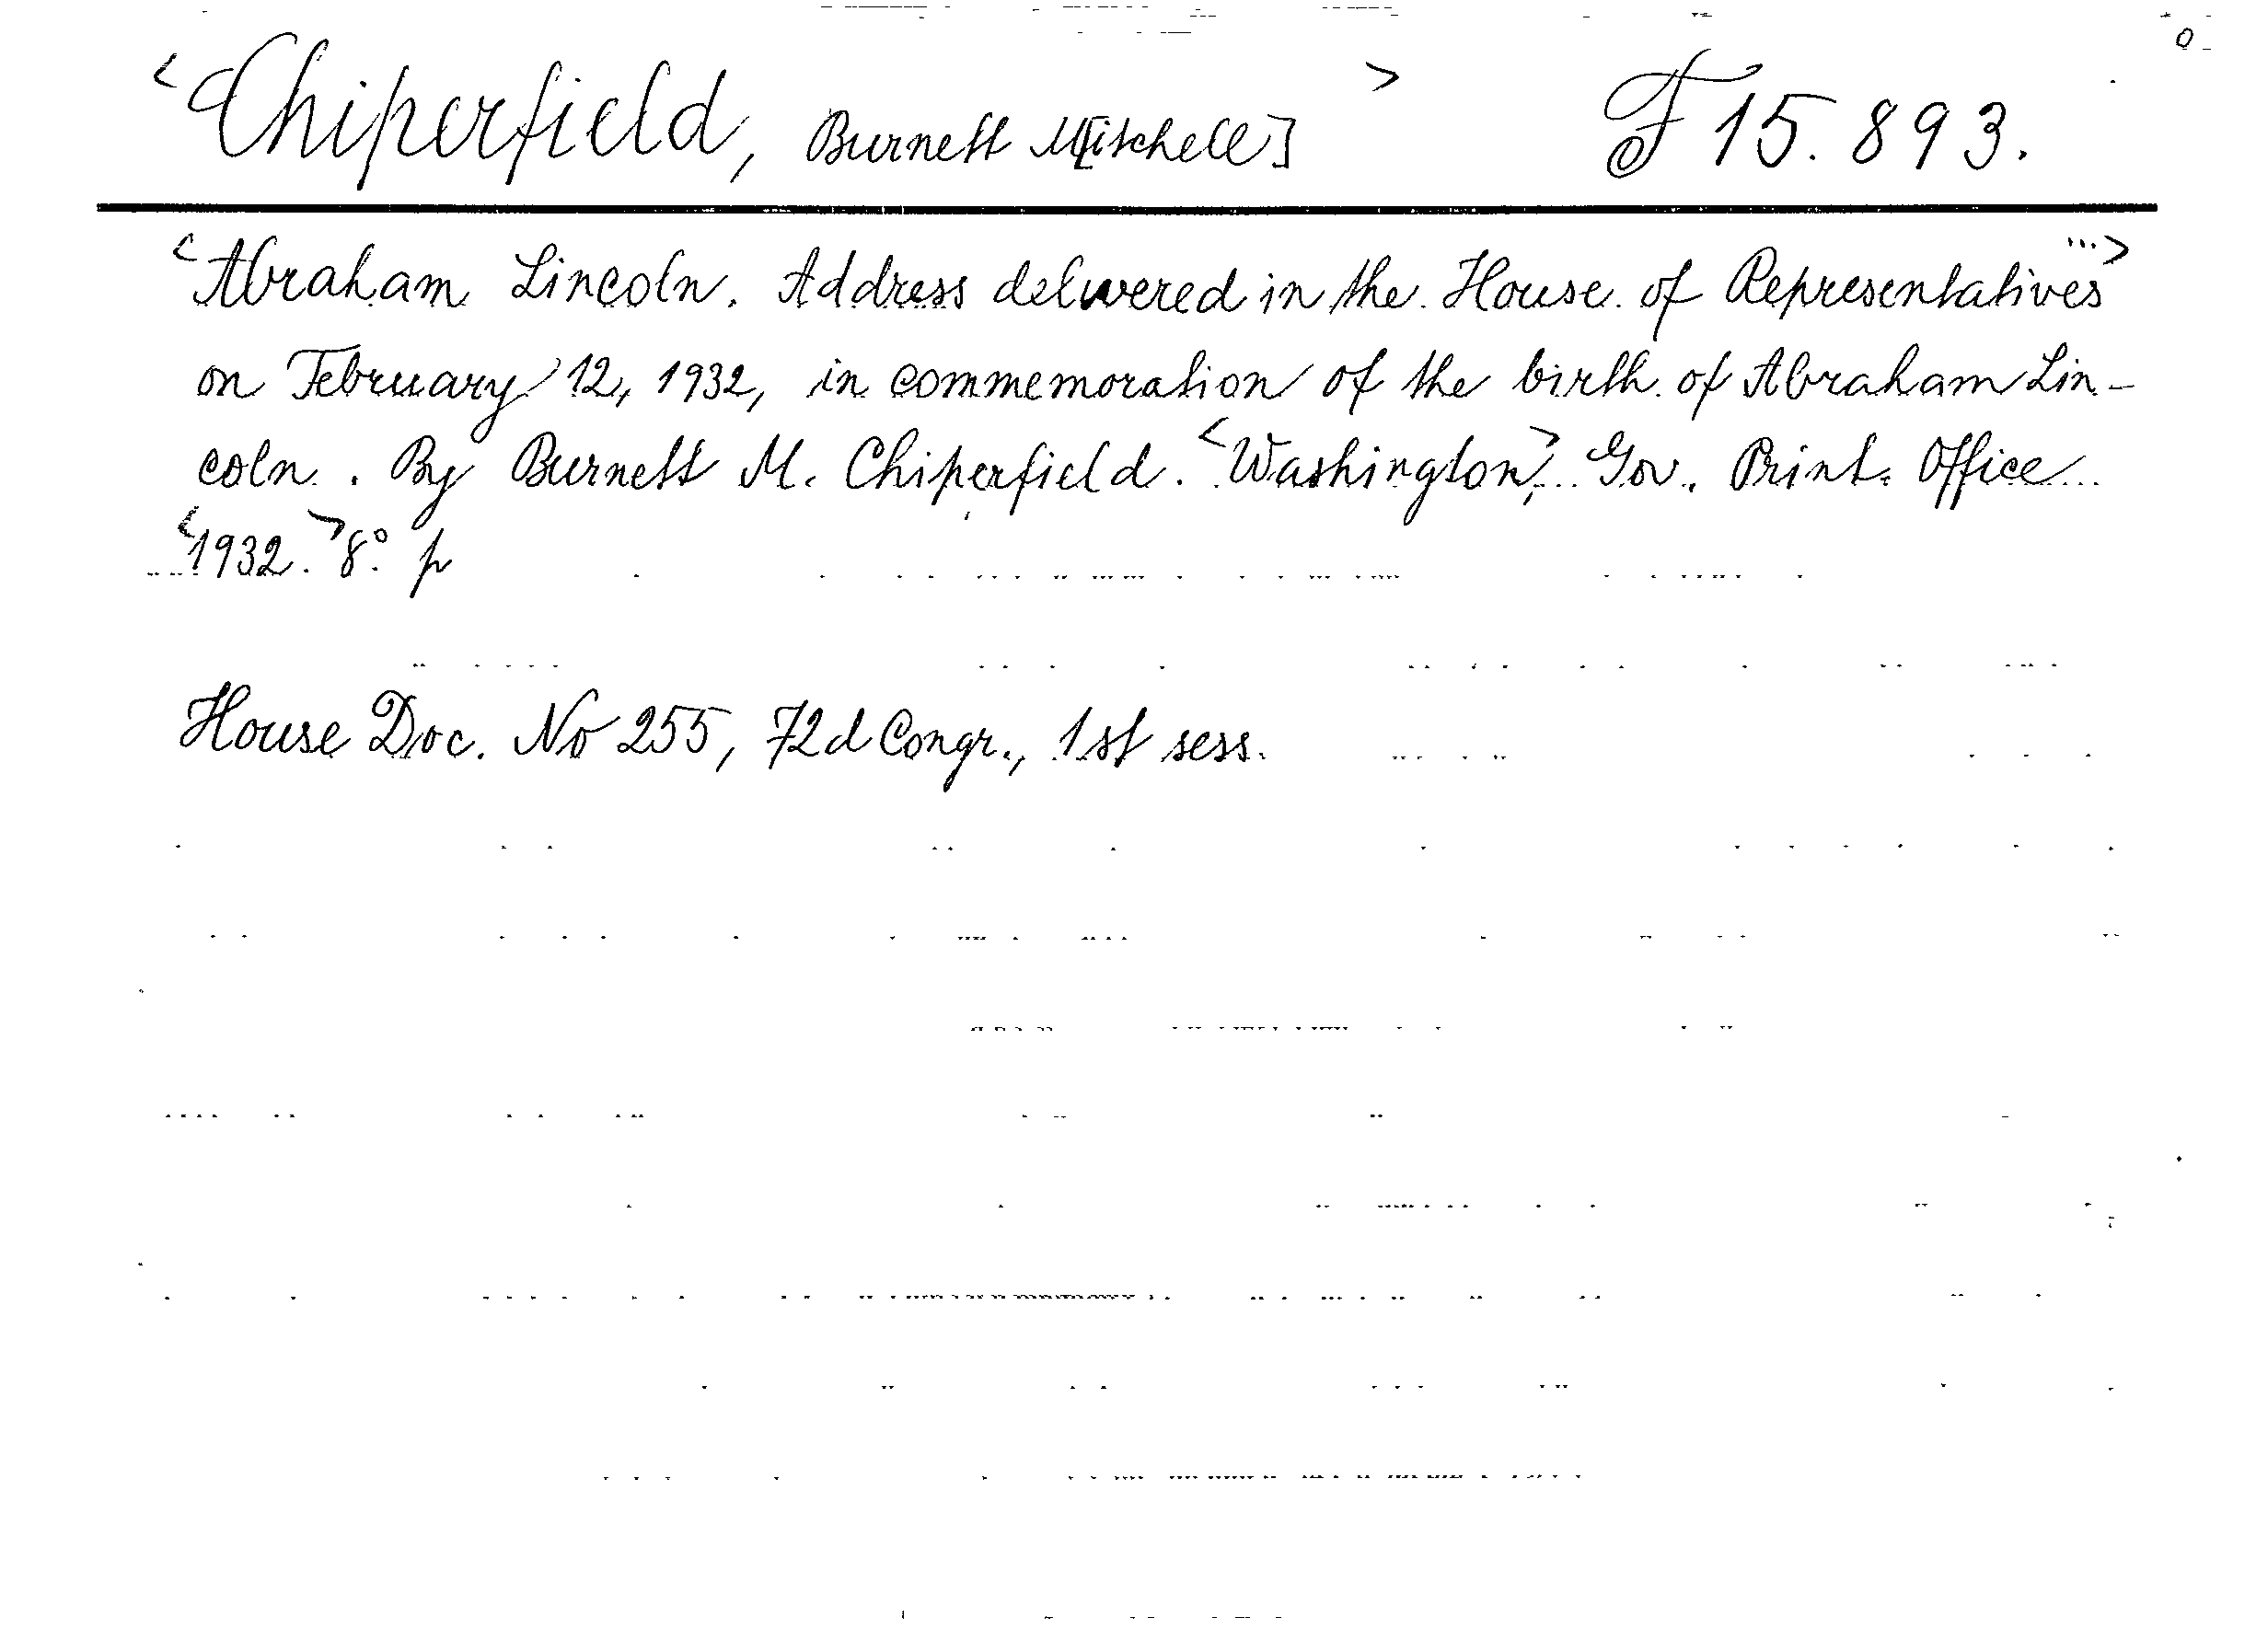 <Chiperfield, Burnett M[itchell]> F 15.893.
<Abraham Lincoln. Address delivered in the House of Representatives...>
on February 12, 1932, in commemoration of the birth of Abraham Lin-
coln. By Burnett M. Chiperfield. <Washington,> Gov. Print. Office
<1932.> 8° p
House Doc. No 255, 72d Congr., 1st sess.